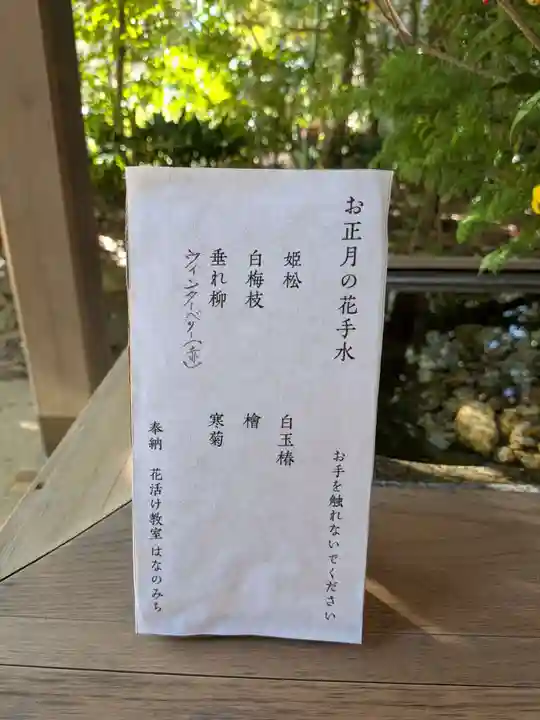 お正月の花手水
お手を触れないでください
姫松　白玉椿
白梅枝　檜
垂れ柳　寒菊
ウィンターベリー(赤)
奉納　花活け教室 はなのみち